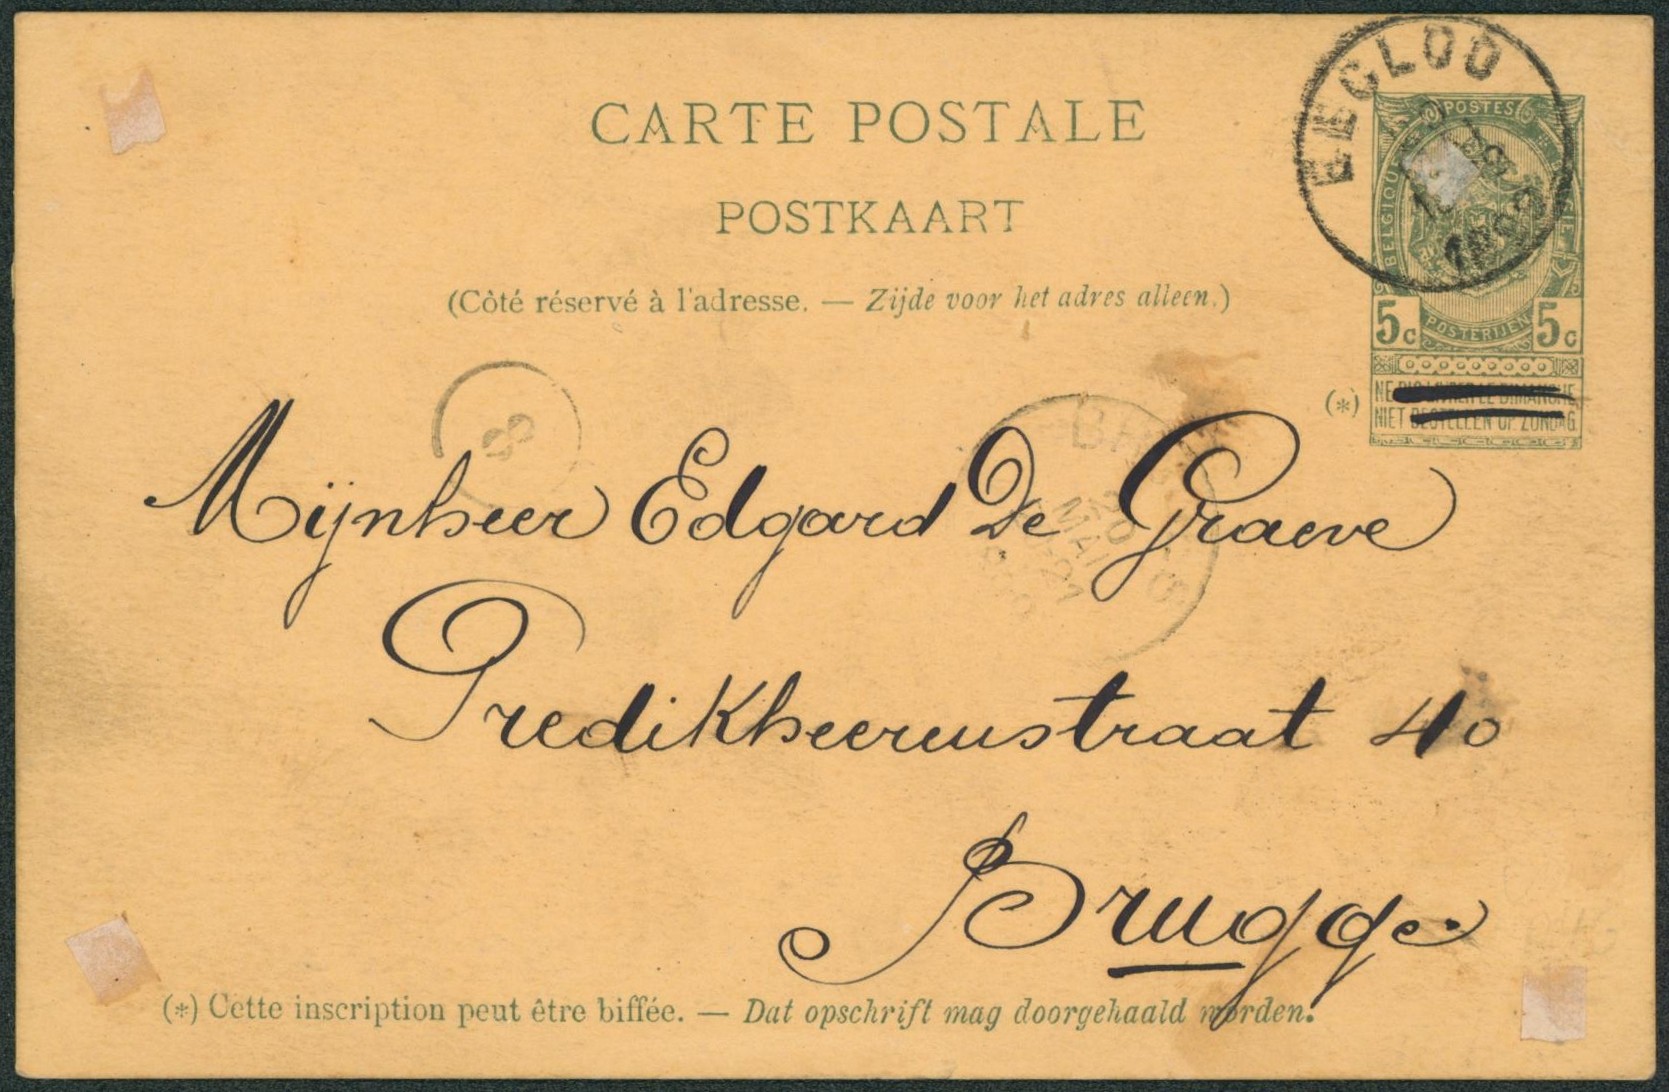 CARTE POSTALE
POSTKAART
(Côté réservé à l'adresse. — Zijde voor het adres alleen.)
EECLOO
POSTES
BELGIQUE
POSTERIJEN
5c 5c
(*)
NE PAS LIVRER LE DIMANCHE
NIET BESTELLEN OP ZONDAG
8
20
MAI
Mijnheer Edgard De Graeve
Predikheerenstraat 40
Brugge
(*) Cette inscription peut être biffée. — Dat opschrift mag doorgehaald worden.